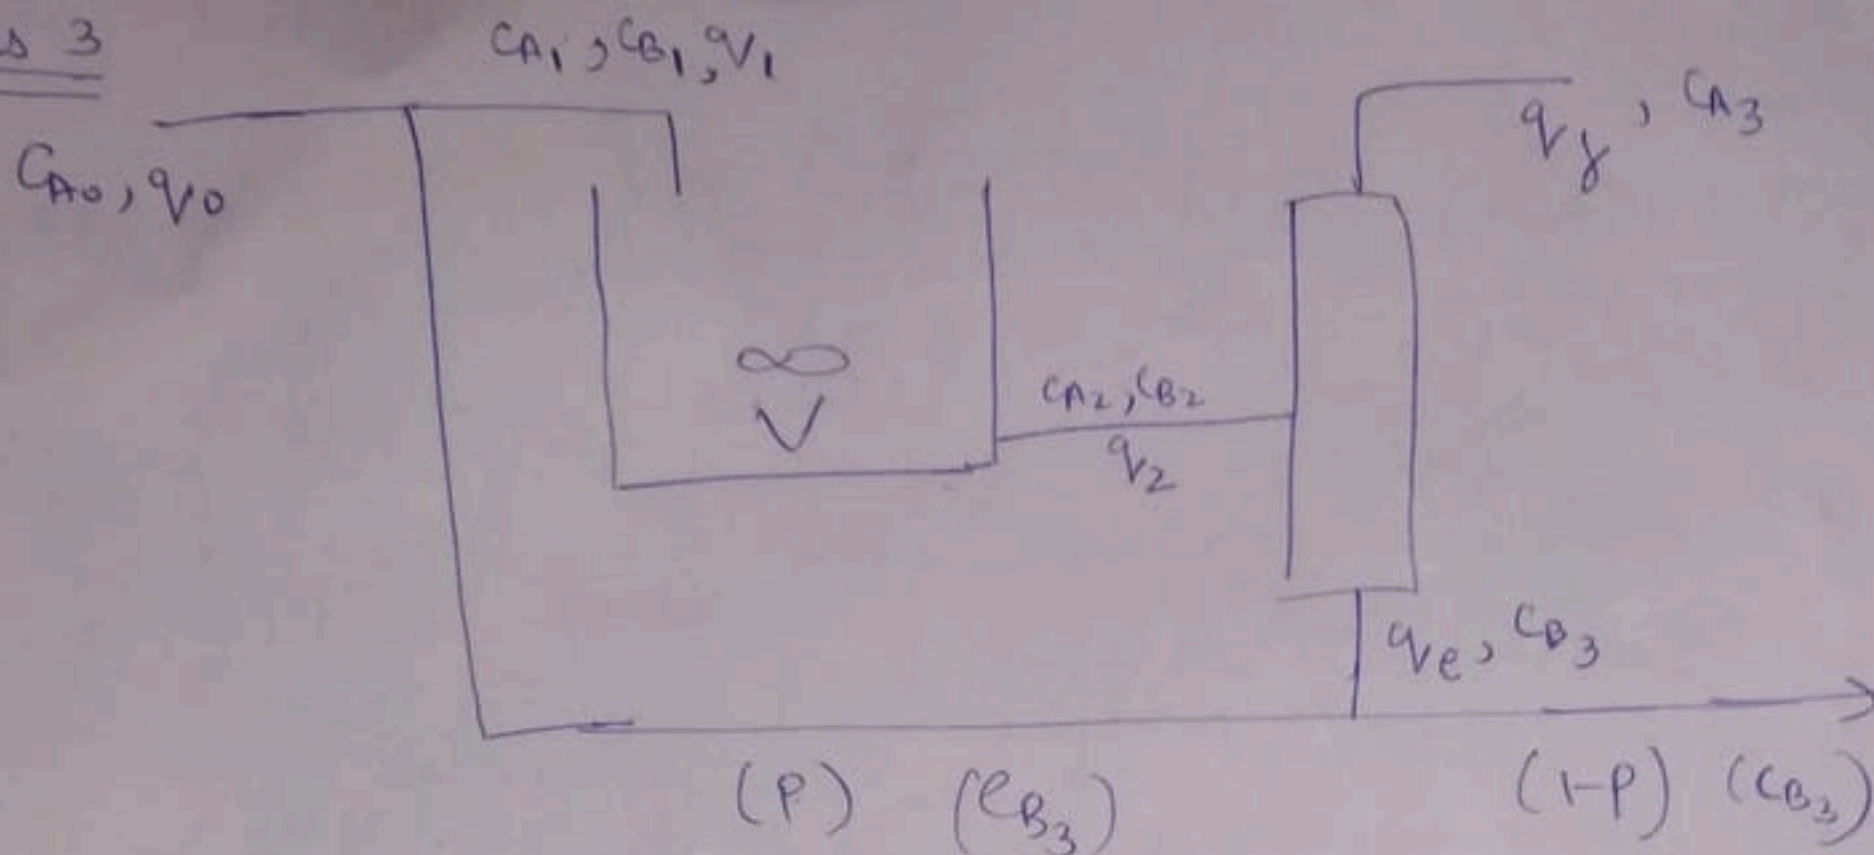 s 3
CA1, CB1, q1
CA0, q0
qy, CA3
V
CA2, CB2
q2
qe, CB3
(P) (CB3)
(1-P) (CB3)